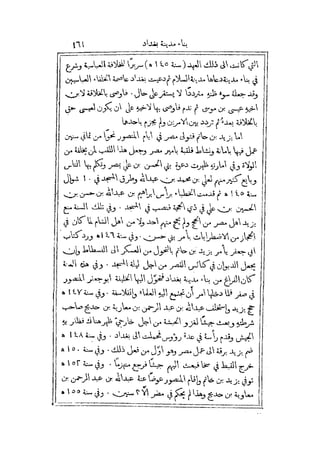 بناء مدينة بغداد ١٦٤
التي كانت الى ذلك العهد (سنة ١٤٥ ه) سريرًا للخلافة العباسية وشرع
في بناء مدينة دعاها مدينة السلام ثم دعيت بغداد عاصمة الخلفاء العباسيين
وقد جعله سوء ظنه مترددًا لا يستقر على حال. فاوصى بالخلافة لابن
اخيه عيسى بن موسى ثم ندم فاوصى بها لاخيه على ان يكون لعيسى حق
بالخلافة بعده ثم تردد بين الامرين ولم يجزم باحدها
اما يزيد بن حاتم فتولى مصر في ايام المنصور نحوًا من ثماني سنين
عمل فيها بامانة ونشاط فلقبه بامير مصر وجعل هذا اللقب لمن يخلفه من
الولاة وفي امارته ظهرت دعوة بني الحسن بن علي بمصر وتكلم بها الناس
وبايع كثير منهم لعلي بن محمد بن عبدالله وطرق المسجد في ١٠ شوال
سنة ١٤٥ ه ثم قدمت الخطباء براس ابراهيم بن عبد الله بن حسن بن
الحسين بن علي في ذي الحجة فنصب في المسجد. وفي تلك السنة منع
يزيد اهل مصر من الحج ولم يحج منهم احد ولا من اهل الشام لما كان في
الحجاز من الاضطرابات بأمر بني حسن. وفي سنة ١٤٦ ه ورد كتاب
ابي جعفر يأمر يزيد بن حاتم بالتحول من العسكر الى الفسطاط وان
يجعل الديوان في كنائس القصر من اجل ليلة المسجد. وفي هذه السنة
كان الفراغ من بناء مدينة بغداد فتحول اليها الخليفة ابوجعفر المنصور
في صفر فلما دخلها امر ان تجتمع اليه العلماء والفلاسفة. وفي سنة ١٤٧ ه
حج يزيد واستخلف عبدالله بن عبد الرحمن بن معاوية بن حديج صاحب
شرطته وبعث جيشًا لغزو الحبشة من اجل خارجي ظهر هناك فظفر به
الجيش وقدم رأسه في عدة رؤوس فحملت الى بغداد. وفي سنة ١٤٨ ه
ضم يزيد برقة الى عمل مصر وهو اول من فعل ذلك. وفي سنة ١٥٠ ه
خرج القبط في سخا فبعث اليهم جيشًا فرجع منهزمًا. وفي سنة ١٥٢ ه
توفي يزيد بن حاتم واقام المنصور عوضًا عنه عبدالله بن عبد الرحمن بن
معاوية بن حديج وهذا لم يحكم في مصر الا ٣ سنين. وفي سنة ١٥٥ ه